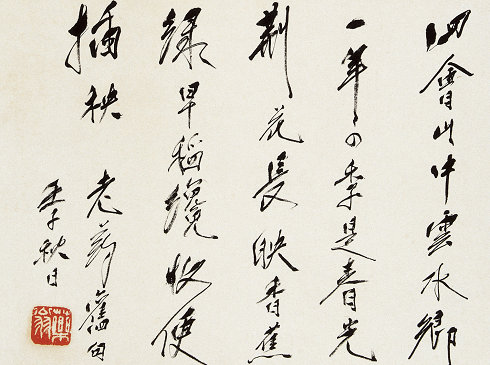 四會山中雲水鄉
一年四季是春光
荊花長映香蕉
綠早稻纔收便
插秧
老葯舊句
壬子秋日
藥翁